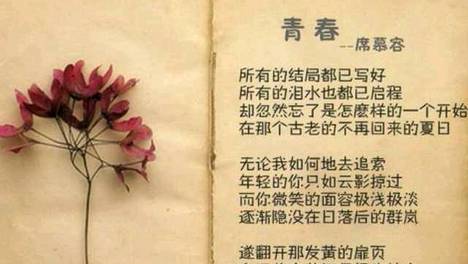 青春
--席慕容
所有的结局都已写好
所有的泪水也都已启程
却忽然忘了是怎麽样的一个开始
在那个古老的不再回来的夏日
无论我如何地去追索
年轻的你只如云影掠过
而你微笑的面容极浅极淡
逐渐隐没在日落后的群岚
遂翻开那发黄的扉页